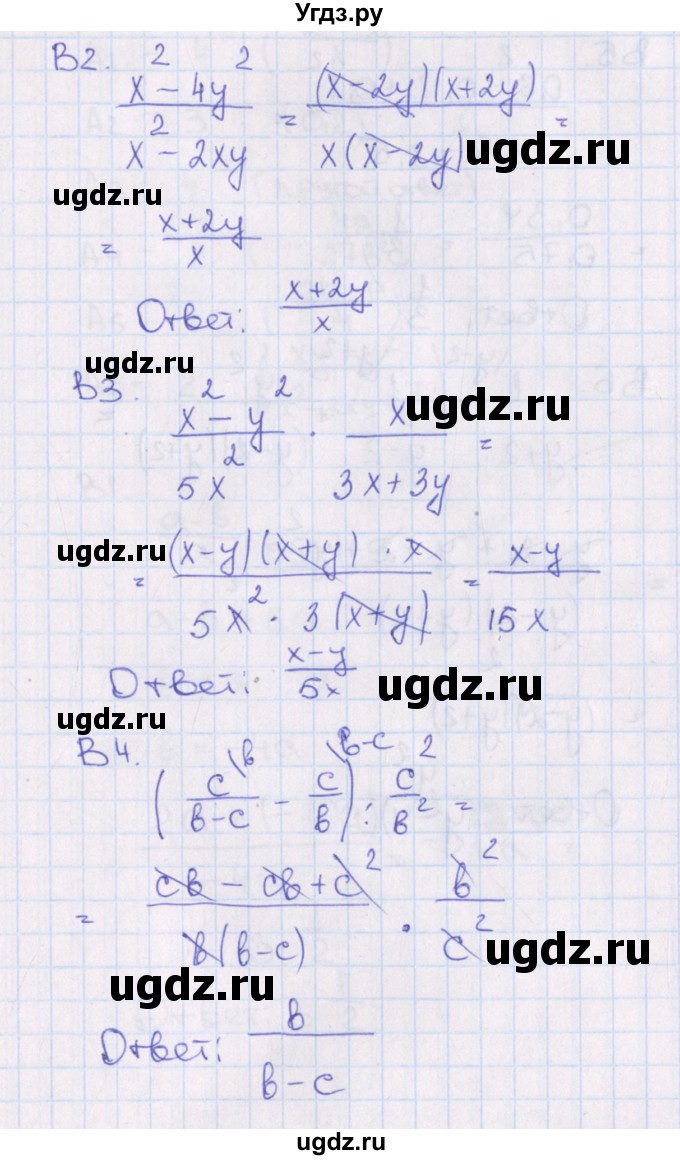 Угдз.ру
В2. (x² - 4y²)/(x² - 2xy) = ((x-2y)(x+2y))/(x(x-2y)) =
ugdz.ru
ugdz.ru
= (x+2y)/x
Ответ: (x+2y)/x
ugdz.ru
В3. (x² - y²)/(5x²) · x/(3x+3y) =
ugdz.ru
ugdz.ru
= ((x-y)(x+y) · x)/(5x² · 3(x+y)) = (x-y)/(15x)
Ответ: (x-y)/(5x)
ugdz.ru
ugdz.ru
В4. (c\в/(в-c) - c\в-c/в) : c²/в² =
ugdz.ru
= (cв - cв + c²)/(в(в-c)) · в²/c²
ugdz.ru
ugdz.ru
Ответ: в/(в-c)
ugdz.ru